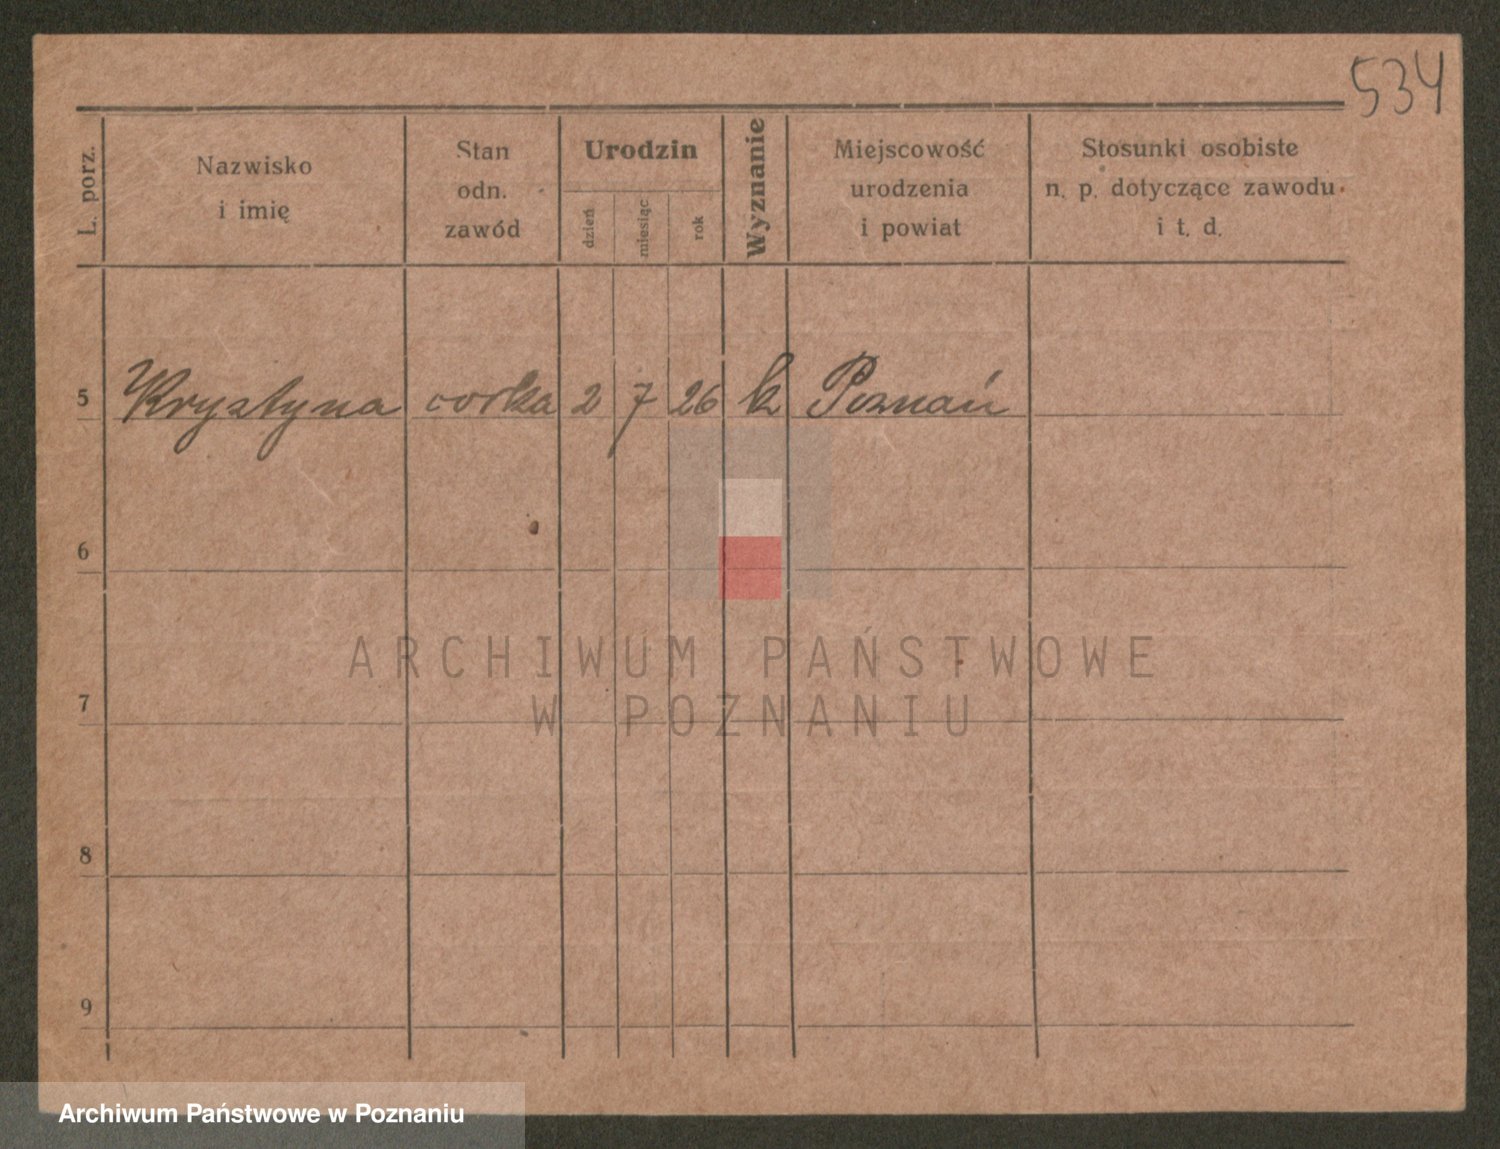 534
L. porz.
Nazwisko
i imię
Stan
odn.
zawód
Urodzin
dzień
miesiąc
rok
Wyznanie
Miejscowość
urodzenia
i powiat
Stosunki osobiste
n. p. dotyczące zawodu
i t. d.
5 Krystyna corka 2 7 26 k Poznań
6
7
8
9
ARCHIWUM PAŃSTWOWE
W POZNANIU
Archiwum Państwowe w Poznaniu